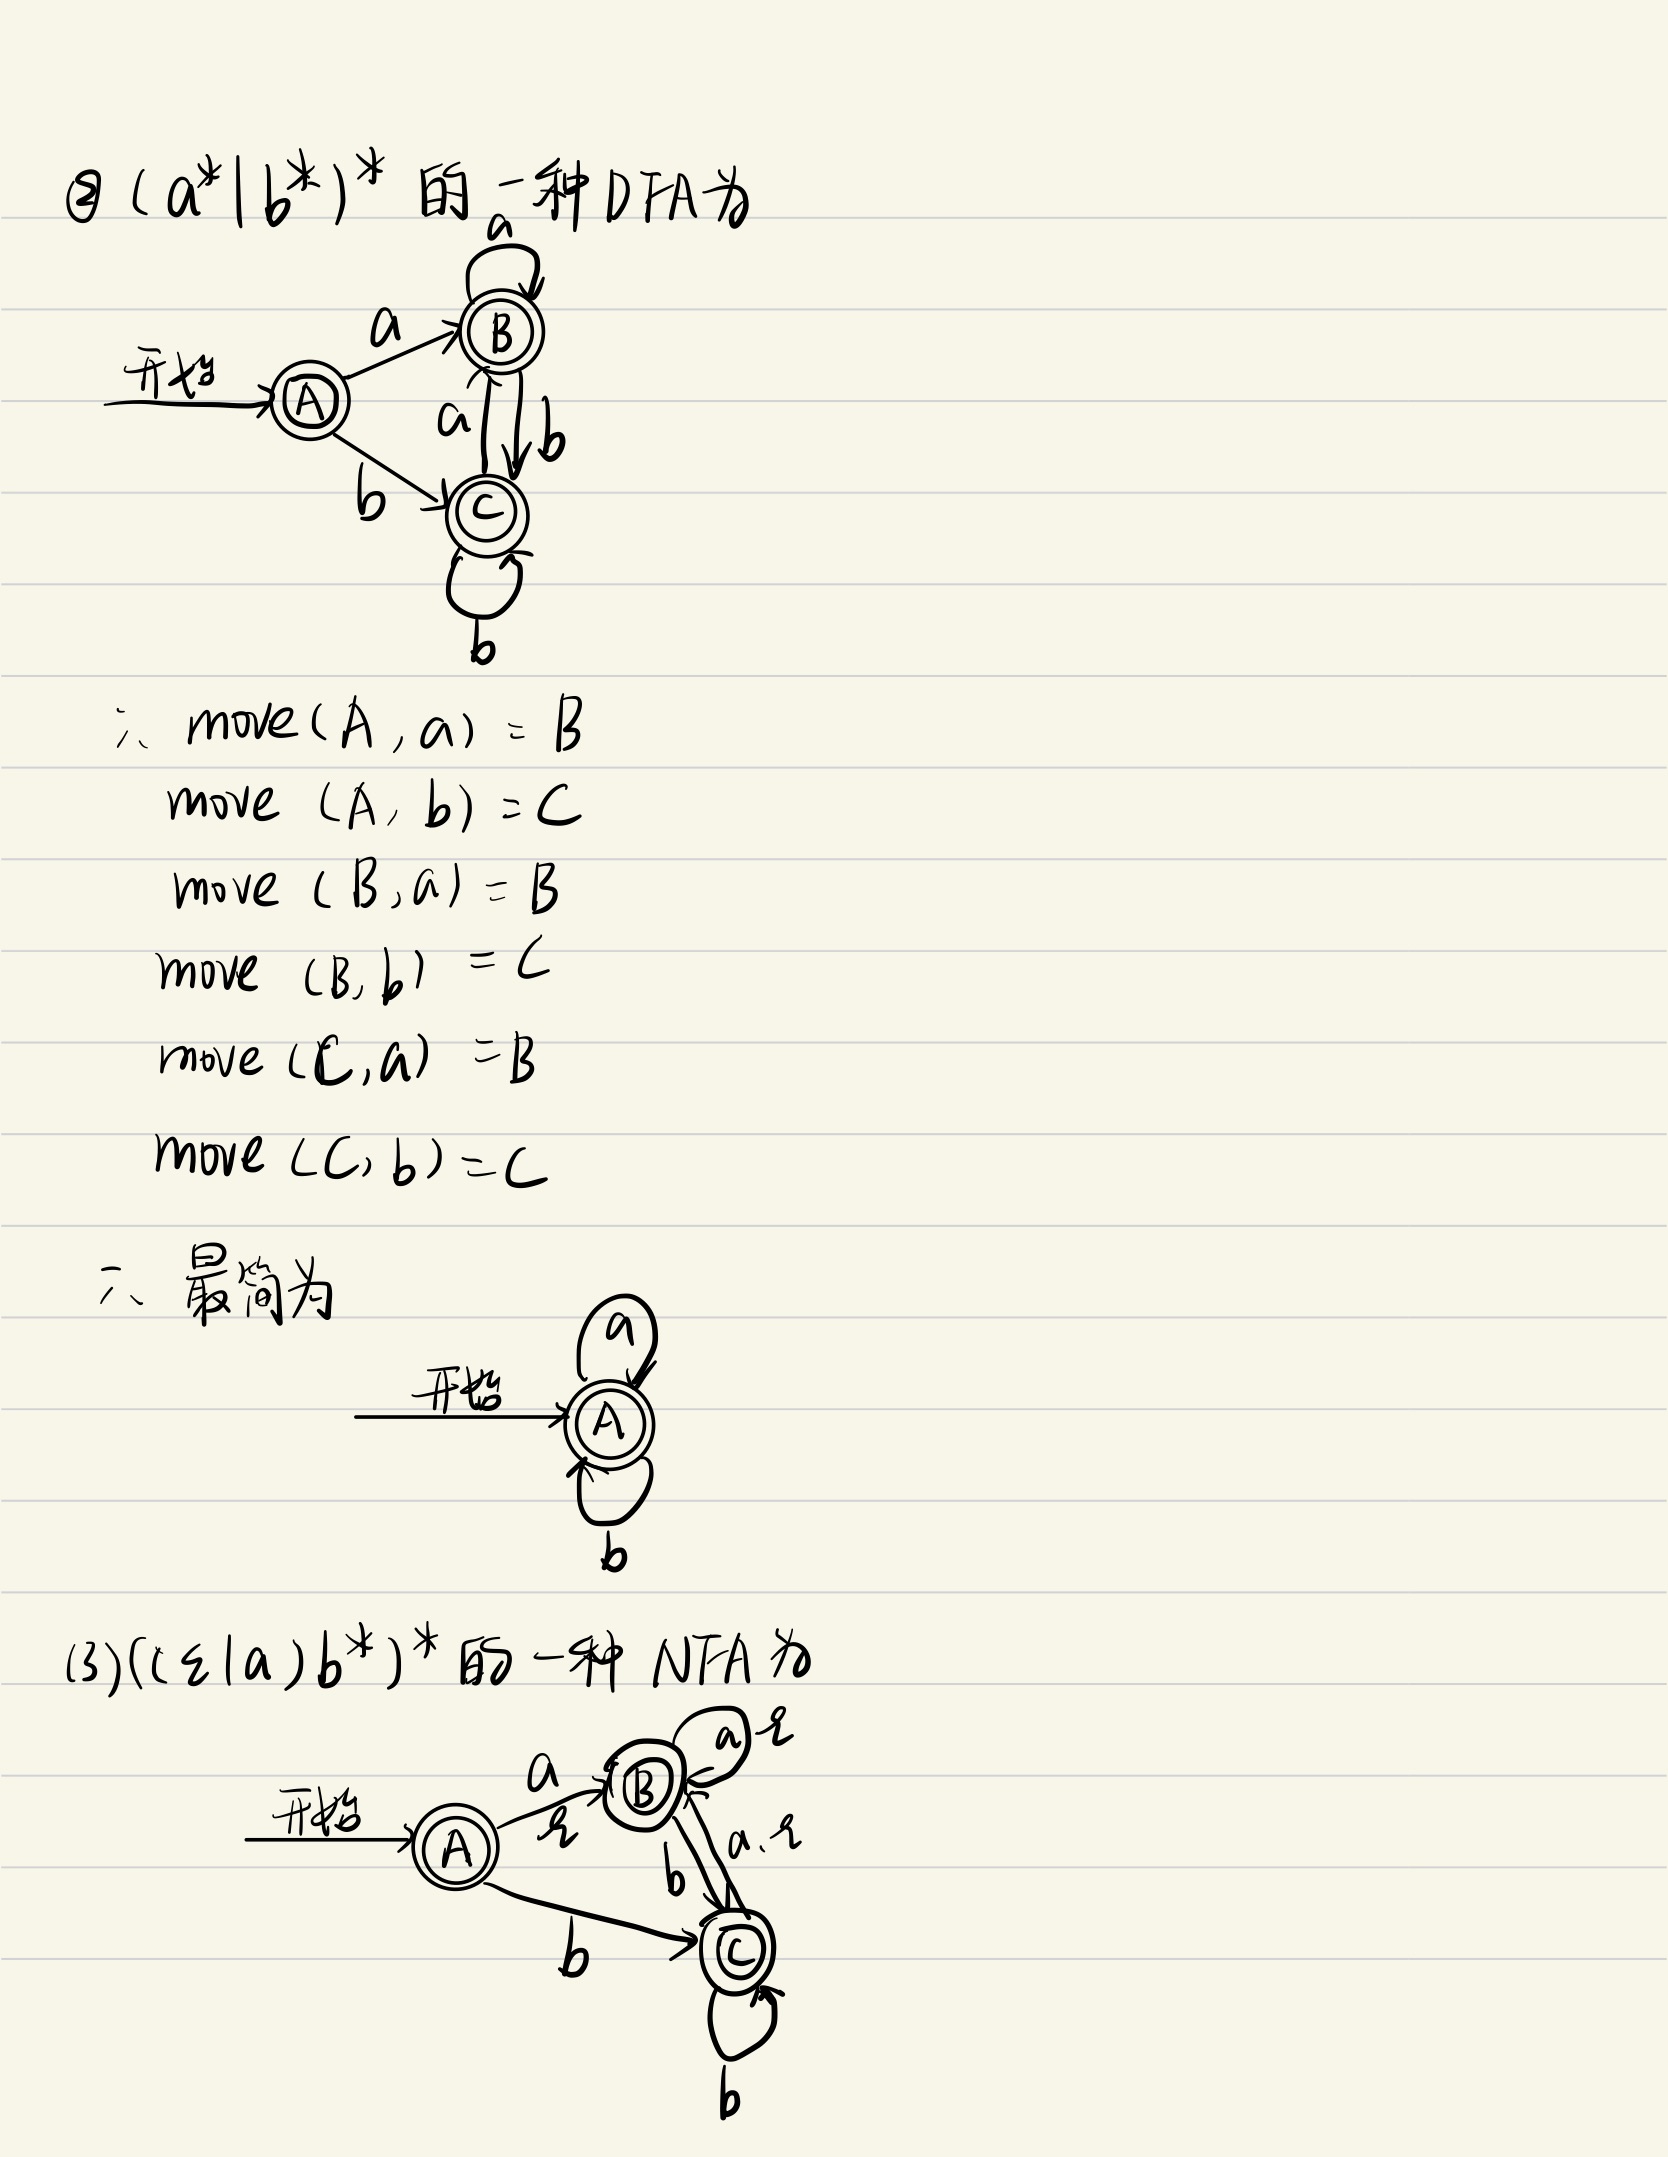 ② (a*|b*)* 的一种DFA为
a
a
B
开始
A
a
b
b
C
b
∴ move(A,a) = B
move (A, b) = C
move (B,a) = B
move (B,b) = C
move (C,a) = B
move (C, b) = C
∴ 最简为
a
开始
A
b
(3)((ε|a)b*)* 的一种 NFA为
a ε
a
B
开始
ε
a. ε
A
b
b
C
b